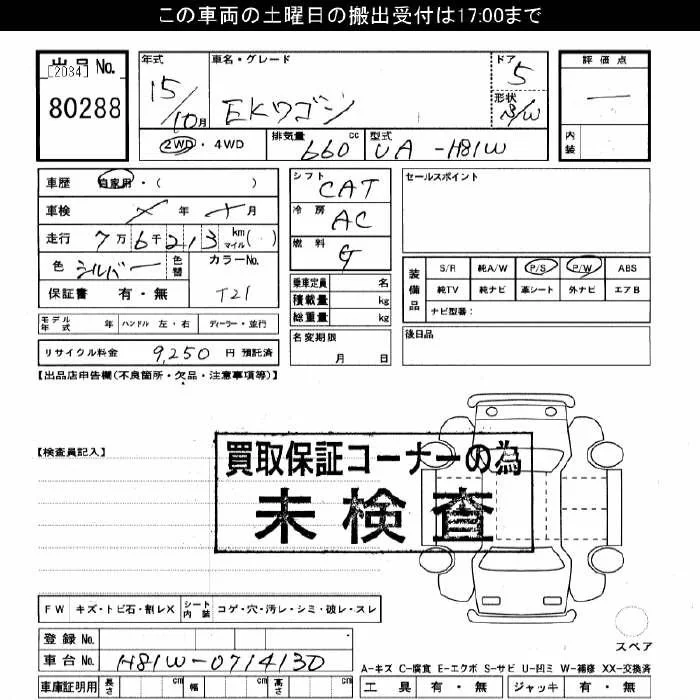 この車両の土曜日の搬出受付は17:00まで
出品 No.
[2084]
80288
年式 15/10月
車名・グレード EKワゴン
ドア 5
形状 3/W
評価点 —
内装
2WD ・ 4WD
排気量 660 cc
型式 UA -H81W
車歴 自家用・( )
車検 メ 年 ナ 月
走行 7万6千213 km マイル( )
色 シルバー 色替
カラーNo. T21
保証書 有・無
シフト CAT
冷房 AC
燃料 G
乗車定員 名
積載量 kg
総重量 kg
セールスポイント
装備品
S/R 純A/W P/S P/W ABS
純TV 純ナビ 革シート 外ナビ エアB
ナビ型番:
モデル年式 年 ハンドル 左・右 ディーラー・並行
名変期限 月 日
後日品
リサイクル料金 9,250 円 預託済
【出品店申告欄(不良箇所・欠品・注意事項等)】
【検査員記入】
買取保証コーナーの為
未検査
FW キズ・トビ石・割レX シート内装 コゲ・穴・汚レ・シミ・破レ・スレ
スペア
登録 No.
車台 No. H81W-0714130
A-キズ C-腐食 E-エクボ S-サビ U-凹ミ W-補修 XX-交換済
車庫証明用 長さ cm 幅 cm 高さ cm
工具 有・無 ジャッキ 有・無